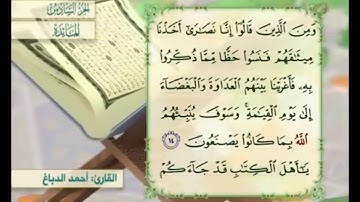 الجزء السادس
المائدة
وَمِنَ ٱلَّذِينَ قَالُوٓا۟ إِنَّا نَصَـٰرَىٰٓ أَخَذْنَا
مِيثَـٰقَهُمْ فَنَسُوا۟ حَظًّا مِّمَّا ذُكِّرُوا۟
بِهِۦ فَأَغْرَيْنَا بَيْنَهُمُ ٱلْعَدَاوَةَ وَٱلْبَغْضَآءَ
إِلَىٰ يَوْمِ ٱلْقِيَـٰمَةِ ۚ وَسَوْفَ يُنَبِّئُهُمُ
ٱللَّهُ بِمَا كَانُوا۟ يَصْنَعُونَ ١٤
يَـٰٓأَهْلَ ٱلْكِتَـٰبِ قَدْ جَآءَكُمْ
القارئ: أحمد الدباغ